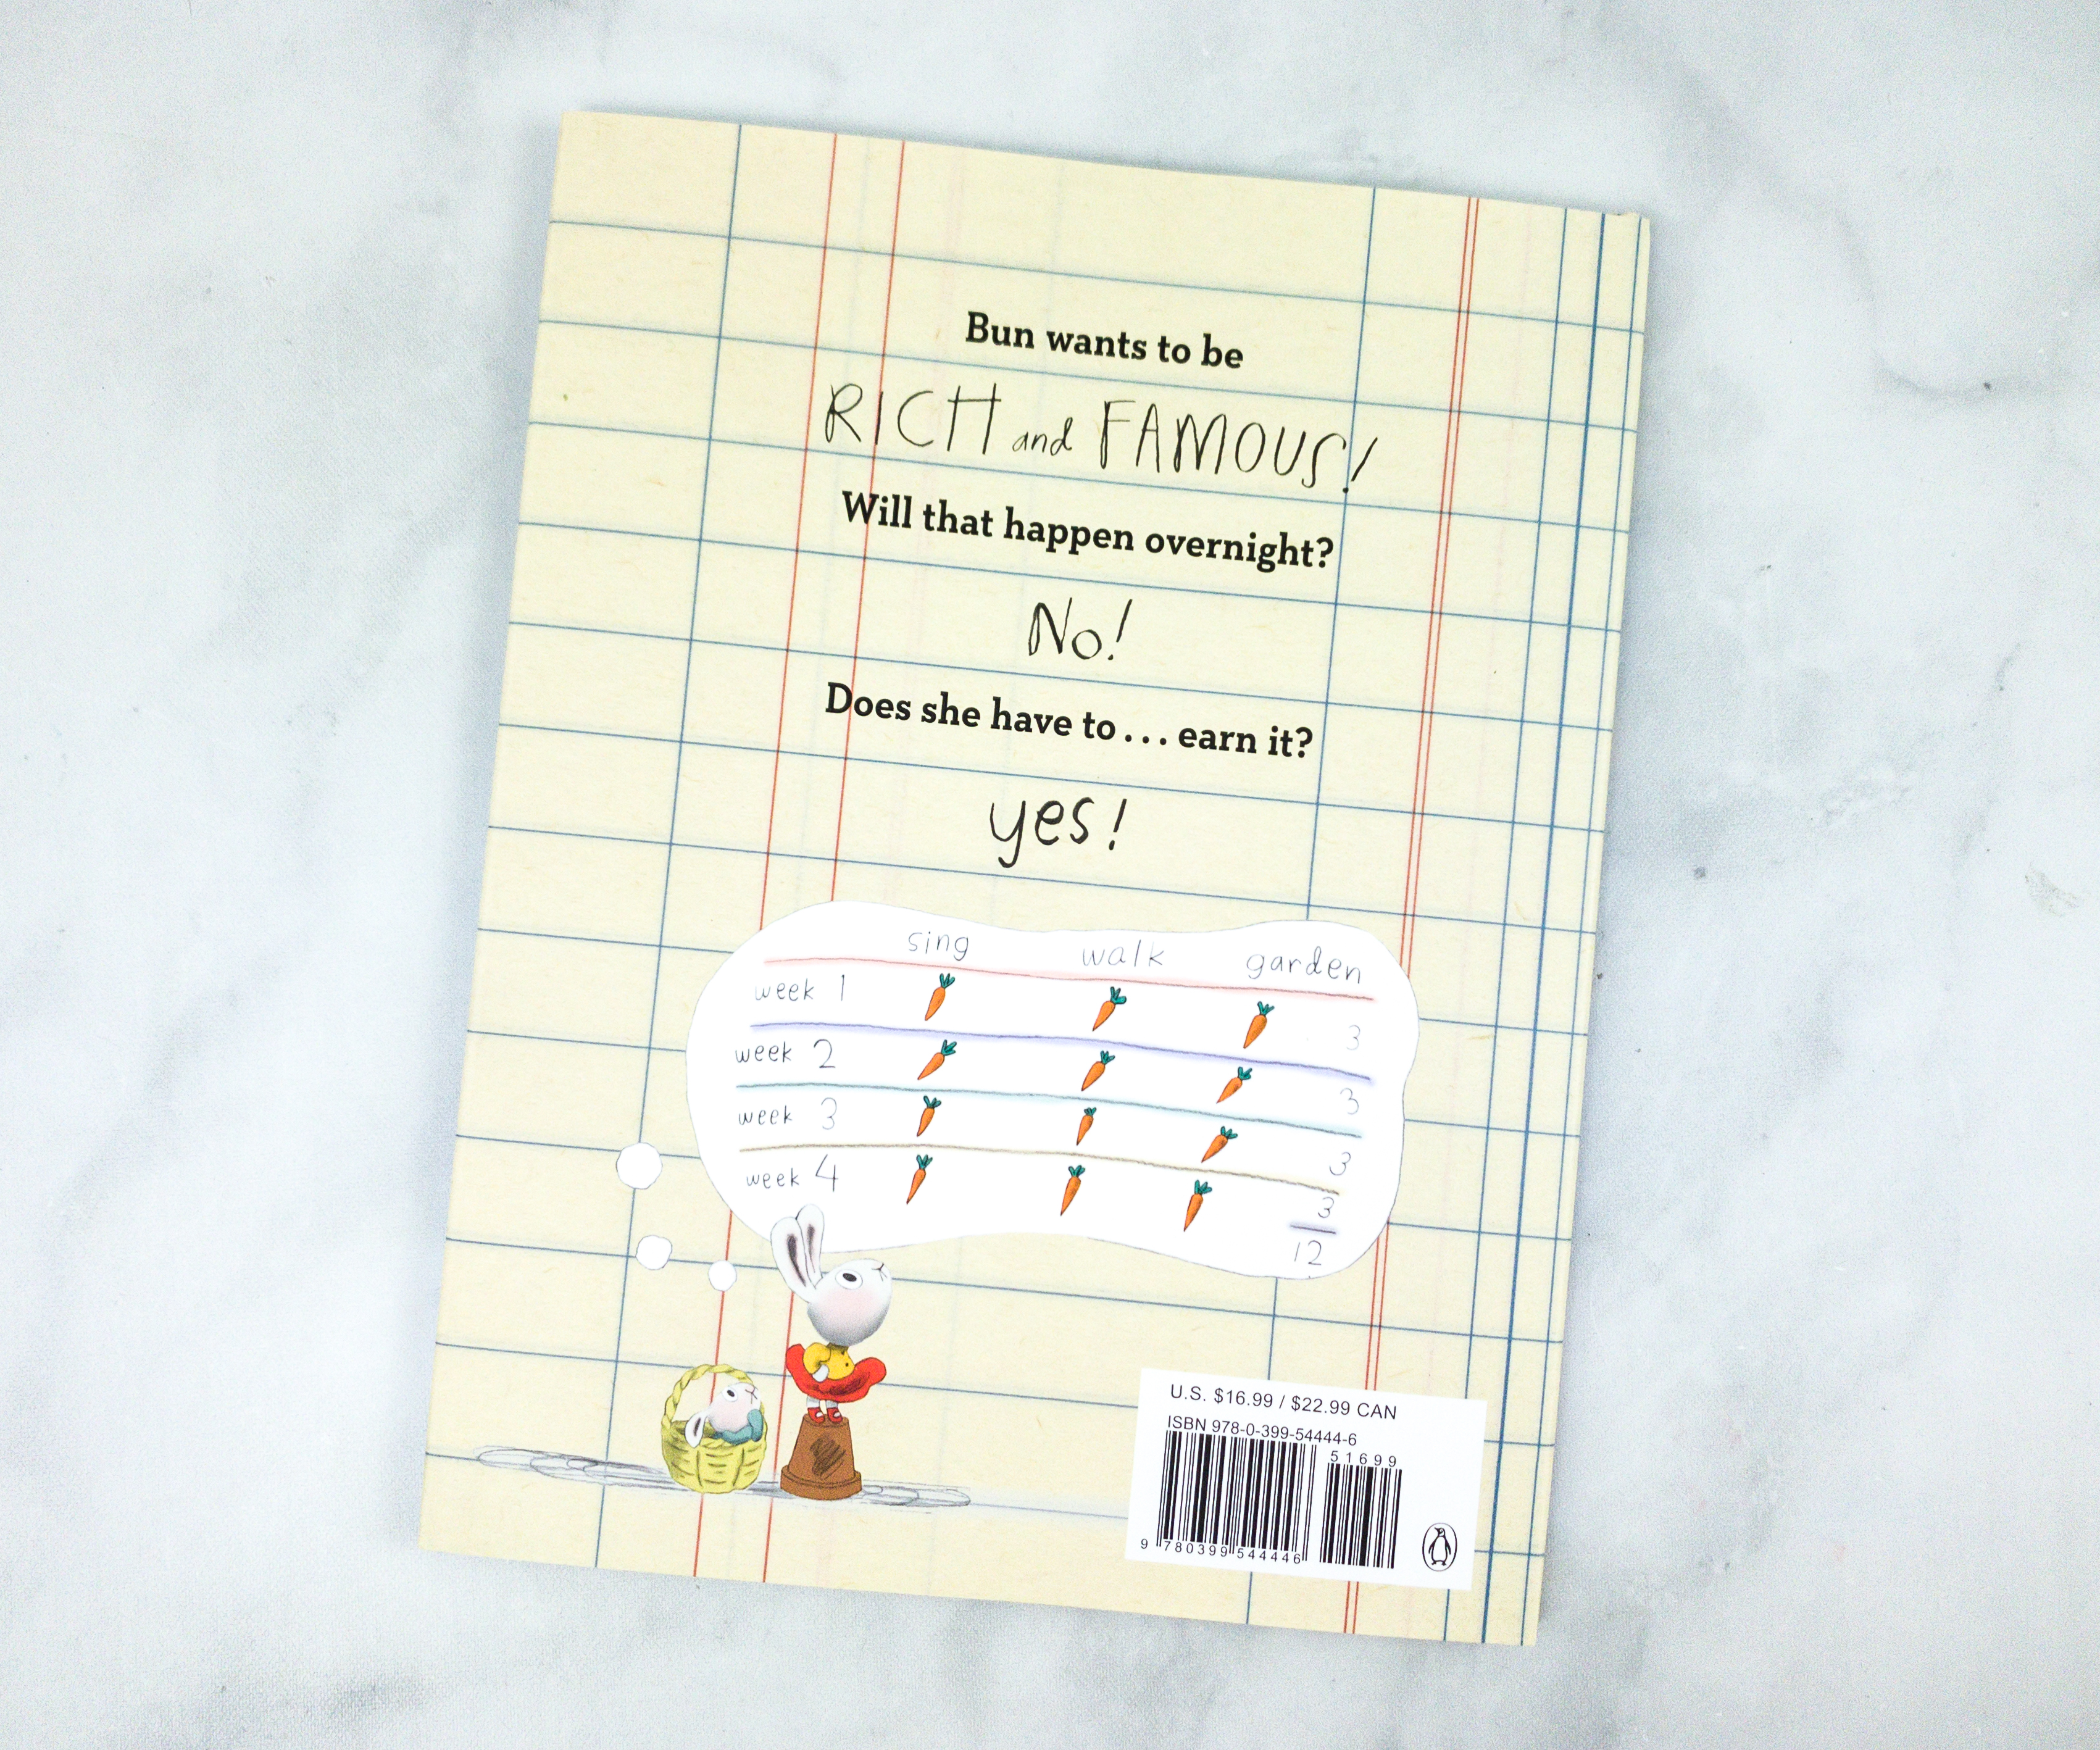 Bun wants to be
RICH and FAMOUS!
Will that happen overnight?
No!
Does she have to... earn it?
yes!
sing walk garden
week 1 3
week 2 3
week 3 3
week 4 3
12
U.S. $16.99 / $22.99 CAN
ISBN 978-0-399-54444-6
51699
9 780399 544446